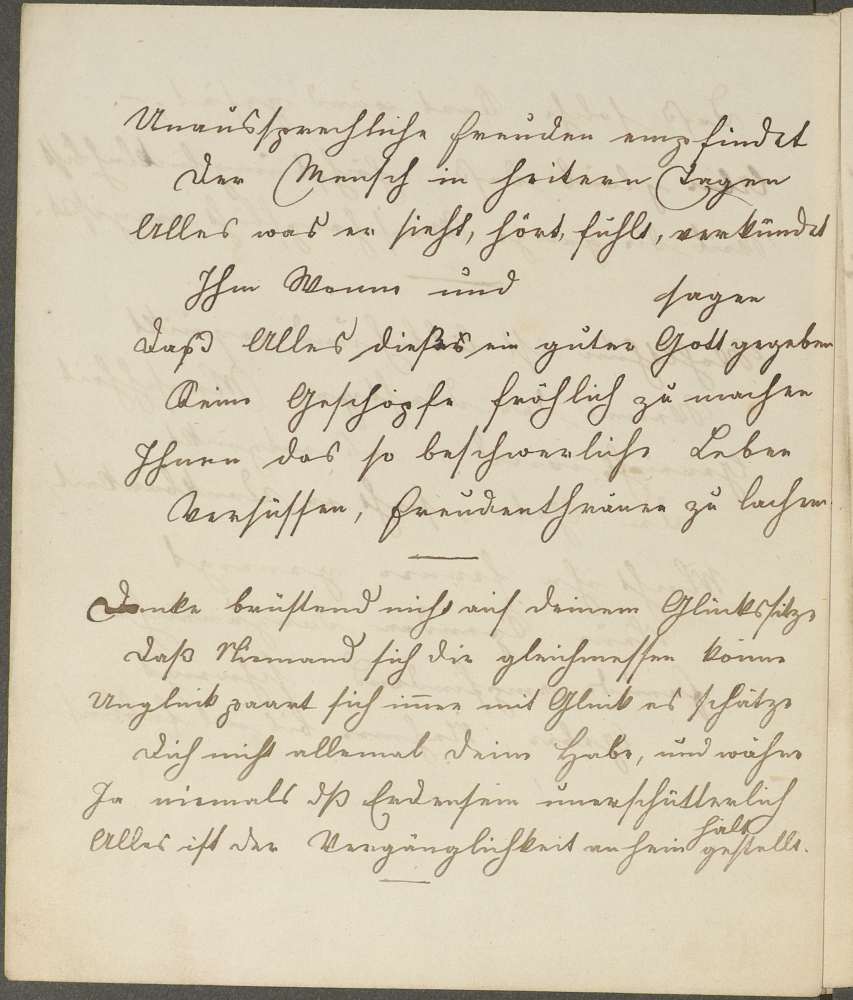 Unaussprechliche Freuden empfindet
Der Mensch in heitern Tagen
Alles was er sieht, hört, fühlt, verkündet
Ihm Wonne und sagen
Daß Alles dieses ein guter Gott gegeben
Seine Geschöpfe fröhlich zu machen
Ihnen das so beschwerliche Leben
Versüssen, Freudenthränen zu lachen
Denke brüstend nicht auf deinem Glückssitze
Daß Niemand sich dir gleichmessen könne
Unglück paart sich imer mit Glück es schätze
Dich nicht allemal deine Habe, und wähne
Ja niemals dß Erdensein unerschütterlich
Alles ist der Vergänglichkeit anheim gestellt.
halt